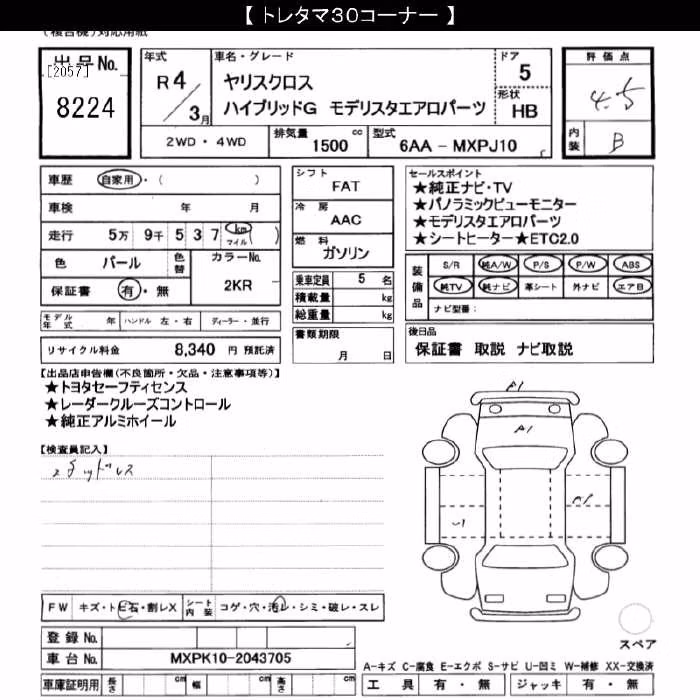 【 トレタマ30コーナー 】
(複合紙)対応用紙
出品No.
[2057]
8224
年式
R4/3月
車名・グレード
ヤリスクロス
ハイブリッドG モデリスタエアロパーツ
ドア
5
形状
HB
評価点
4.5
内装
B
2WD・4WD
排気量
1500 cc
型式
6AA - MXPJ10
車歴 自家用・( )
車検 年 月
走行 5万 9千 5 3 7 km マイル ( )
色 パール
色替
カラーNo.
2KR
保証書 有・無
シフト
FAT
冷房
AAC
燃料
ガソリン
乗車定員 5 名
積載量 kg
総重量 kg
書類期限
月 日
セールスポイント
★純正ナビ・TV
★パノラミックビューモニター
★モデリスタエアロパーツ
★シートヒーター★ETC2.0
装備品
S/R 純A/W P/S P/W ABS
純TV 純ナビ 革シート 外ナビ エアB
ナビ型番:
モデル年式 年 ハンドル 左・右 ディーラー・並行
リサイクル料金 8,340 円 預託済
後日品
保証書 取説 ナビ取説
【出品店申告欄(不良箇所・欠品・注意事項等)】
★トヨタセーフティセンス
★レーダークルーズコントロール
★純正アルミホイール
【検査員記入】
A1
A1
A1
FW キズ・トビ石・割レX
シート内装 コゲ・穴・汚レ・シミ・破レ・スレ
登録No.
車台No. MXPK10-2043705
車庫証明用 長さ cm 幅 cm 高さ cm
スペア
A-キズ C-腐食 E-エクボ S-サビ U-凹ミ W-補修 XX-交換済
工具 有・無 ジャッキ 有・無